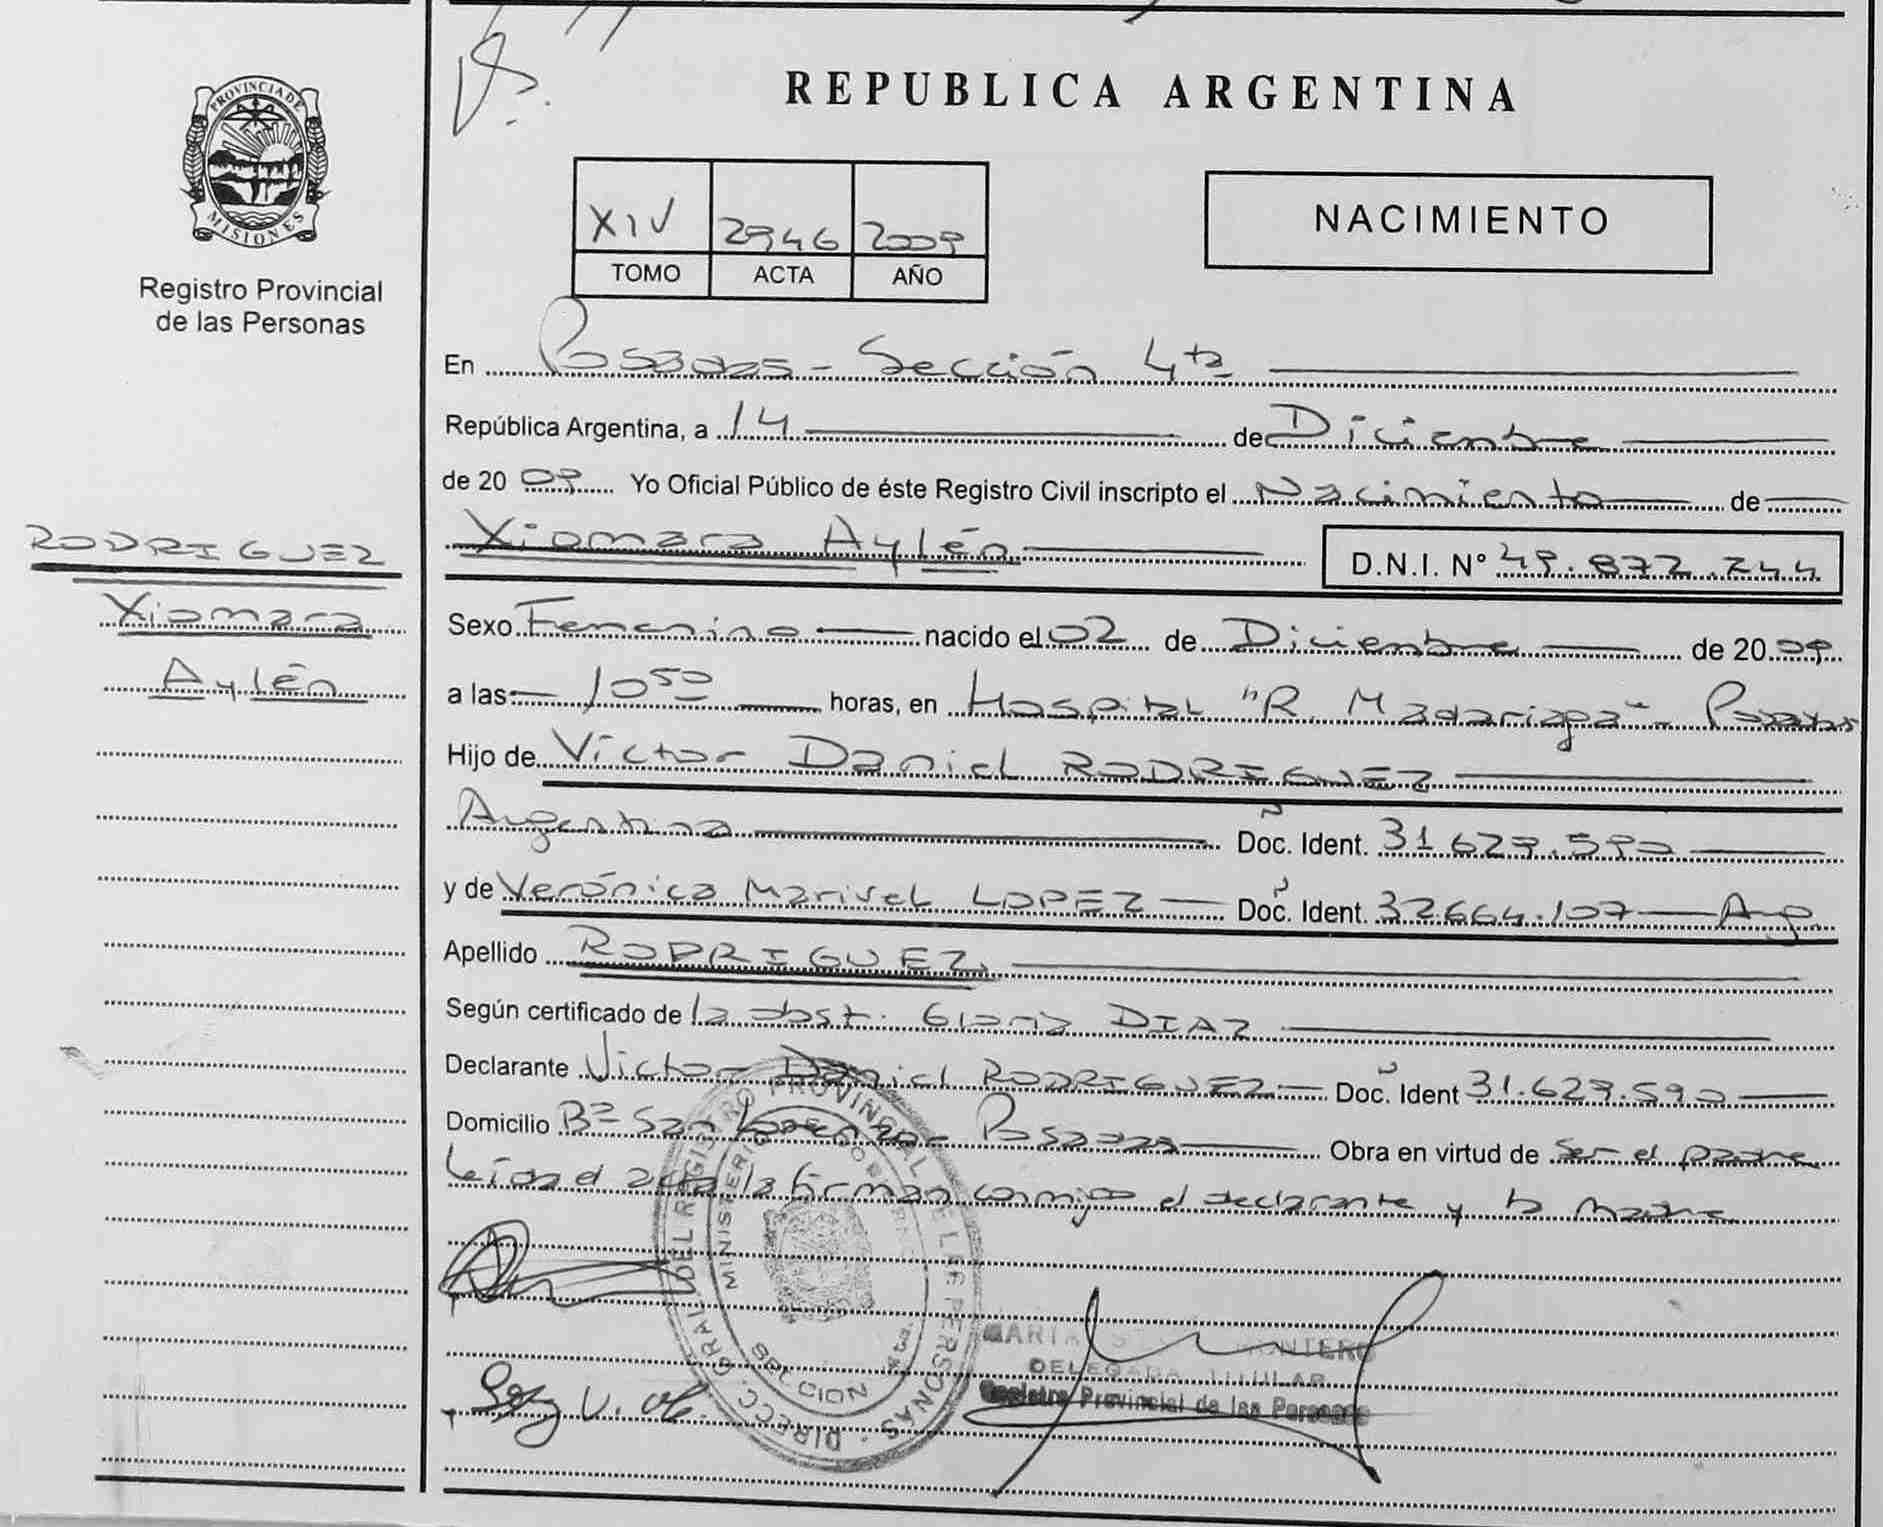 PROVINCIA DE
MISIONES
Registro Provincial
de las Personas
RODRIGUEZ
Xiomara
Aylén
REPUBLICA ARGENTINA
XIV 2946 2009
TOMO ACTA AÑO
NACIMIENTO
En Posadas - Sección 4ta
República Argentina, a 14 de Diciembre
de 20 09 Yo Oficial Público de éste Registro Civil inscripto el Nacimiento de
Xiomara Aylén D.N.I. Nº 49.872.244
Sexo Femenino nacido el 02 de Diciembre de 20 09
a las 10 50 horas, en Hospital "R. Madariaga" - Posadas
Hijo de Víctor Daniel RODRIGUEZ
Argentina Doc. Ident. 31.629.590
y de Verónica Marivel LOPEZ Doc. Ident. 32.664.107 Arg
Apellido RODRIGUEZ
Según certificado de la obst. Gloria DIAZ
Declarante Víctor Daniel RODRIGUEZ Doc. Ident 31.629.590
Domicilio Bº San Lorenzo - Posadas Obra en virtud de ser el padre
Leída el acta la firman conmigo el declarante y la madre
DIRECC. GRAL. DEL REGISTRO PROVINCIAL DE LAS PERSONAS
MINISTERIO
MARIA MONTERO
DELEGADA TITULAR
Registro Provincial de las Personas